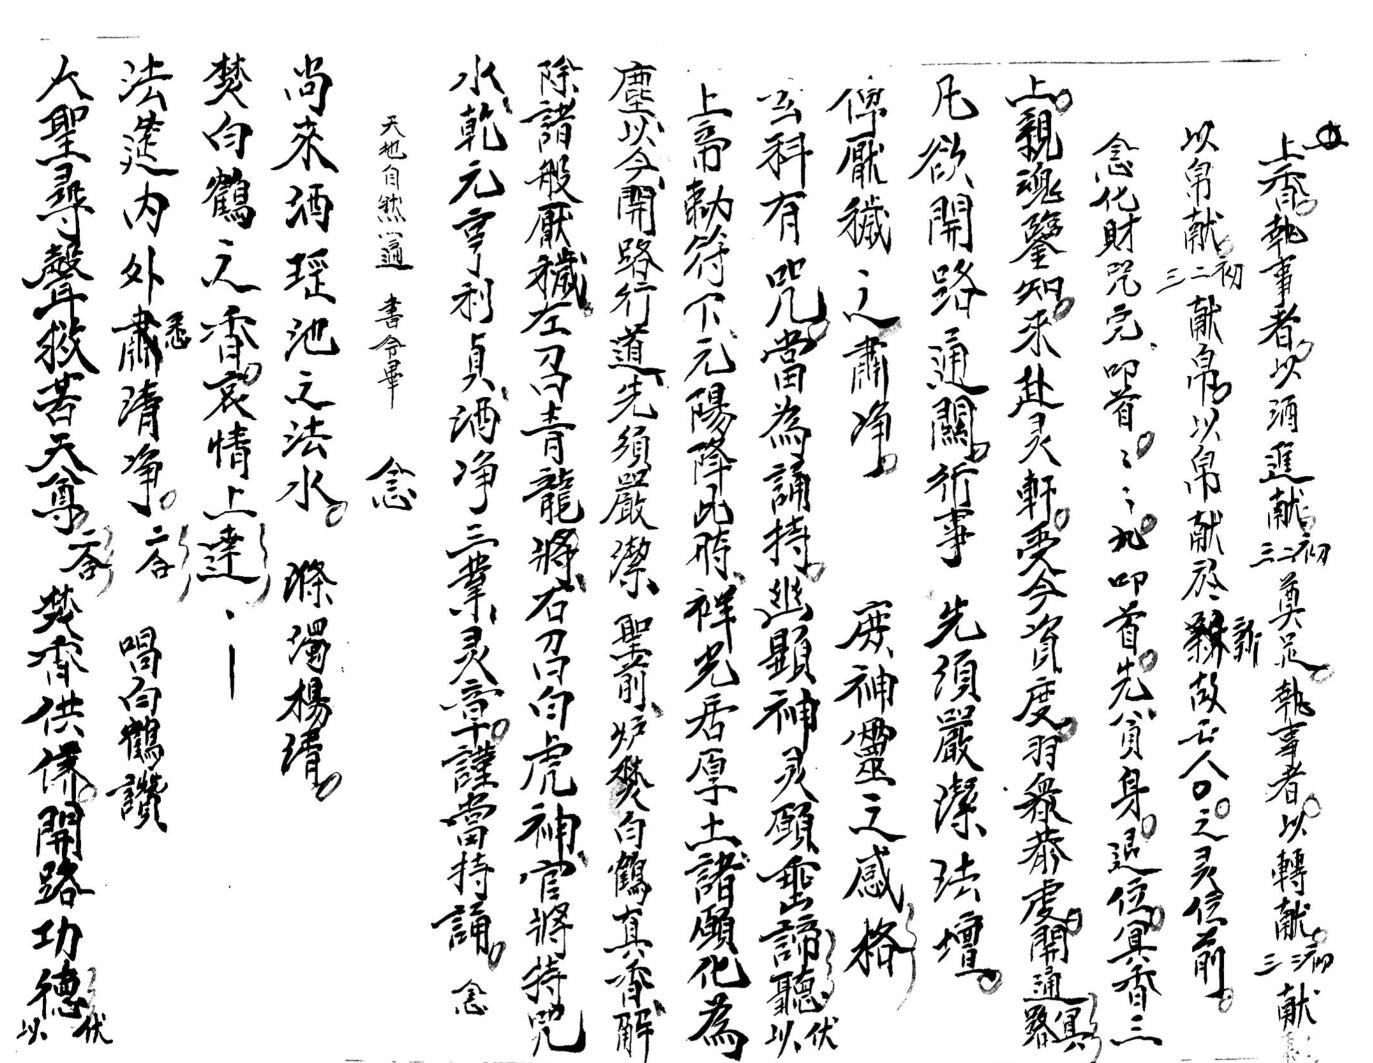 上香。執事者。以酒進献。初二三奠足。執事者。以轉献。初二三献
以帛献。初二三献帛。以帛献於新故亡人○。之灵位前。
念化財咒完、叩首。〻〻九叩首。先贫身。退位。具香三
上。親魂鑒知。来赴灵軒。受今資度。羽衆恭虔。開通冥路
凡欲開路通關。行事 先須嚴潔法壇。
俾厭穢之肅净。 庶神靈之感格
玄科有咒。當為誦持。幽顯神灵願垂諦聽伏以、
上帝勅符下、元陽降此時、祥光居厚土、諸願化為
塵、以今、開路行道、先須嚴潔、聖前、炉焚白鶴真香、解
除諸般厭穢、左召青龍將、右召白虎神、官將持咒
水、乾元亨利貞、洒净三業、灵章。謹當持誦。念
天地自然一遍 書令畢 念
尚来洒瑶池之法水。滌濁楊清。
焚白鶴之香。哀情上達、
法筵内外肅悉清净。二合 唱白鶴讚
大聖尋聲救苦天尊。二合 焚香供养。開路功德伏以